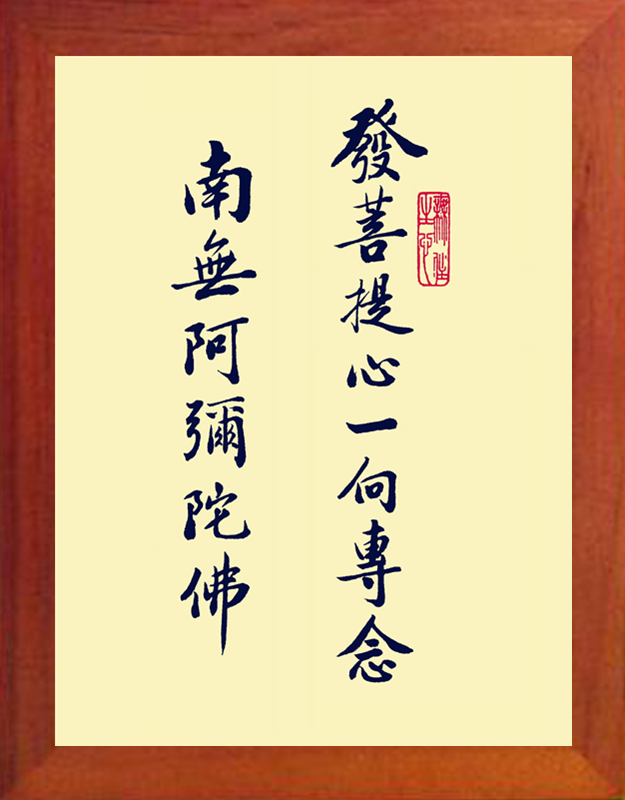 發菩提心一向專念
南無阿彌陀佛